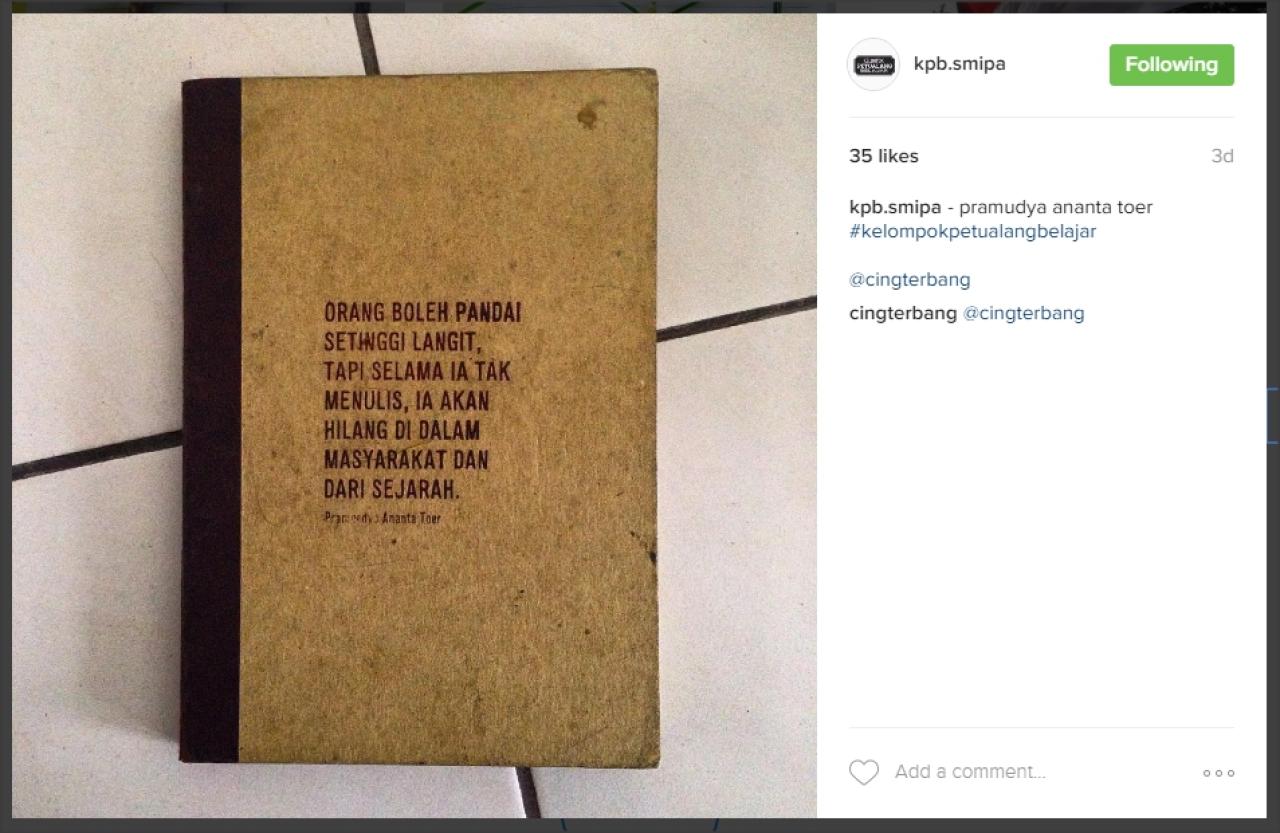 ORANG BOLEH PANDAI
SETINGGI LANGIT,
TAPI SELAMA IA TAK
MENULIS, IA AKAN
HILANG DI DALAM
MASYARAKAT DAN
DARI SEJARAH.
Ananta Toer
kpb.smipa
Following
35 likes
3d
kpb.smipa - pramudya ananta toer
#kelompokpetualangbelajar
@cingterbang
cingterbang @cingterbang
Add a comment...